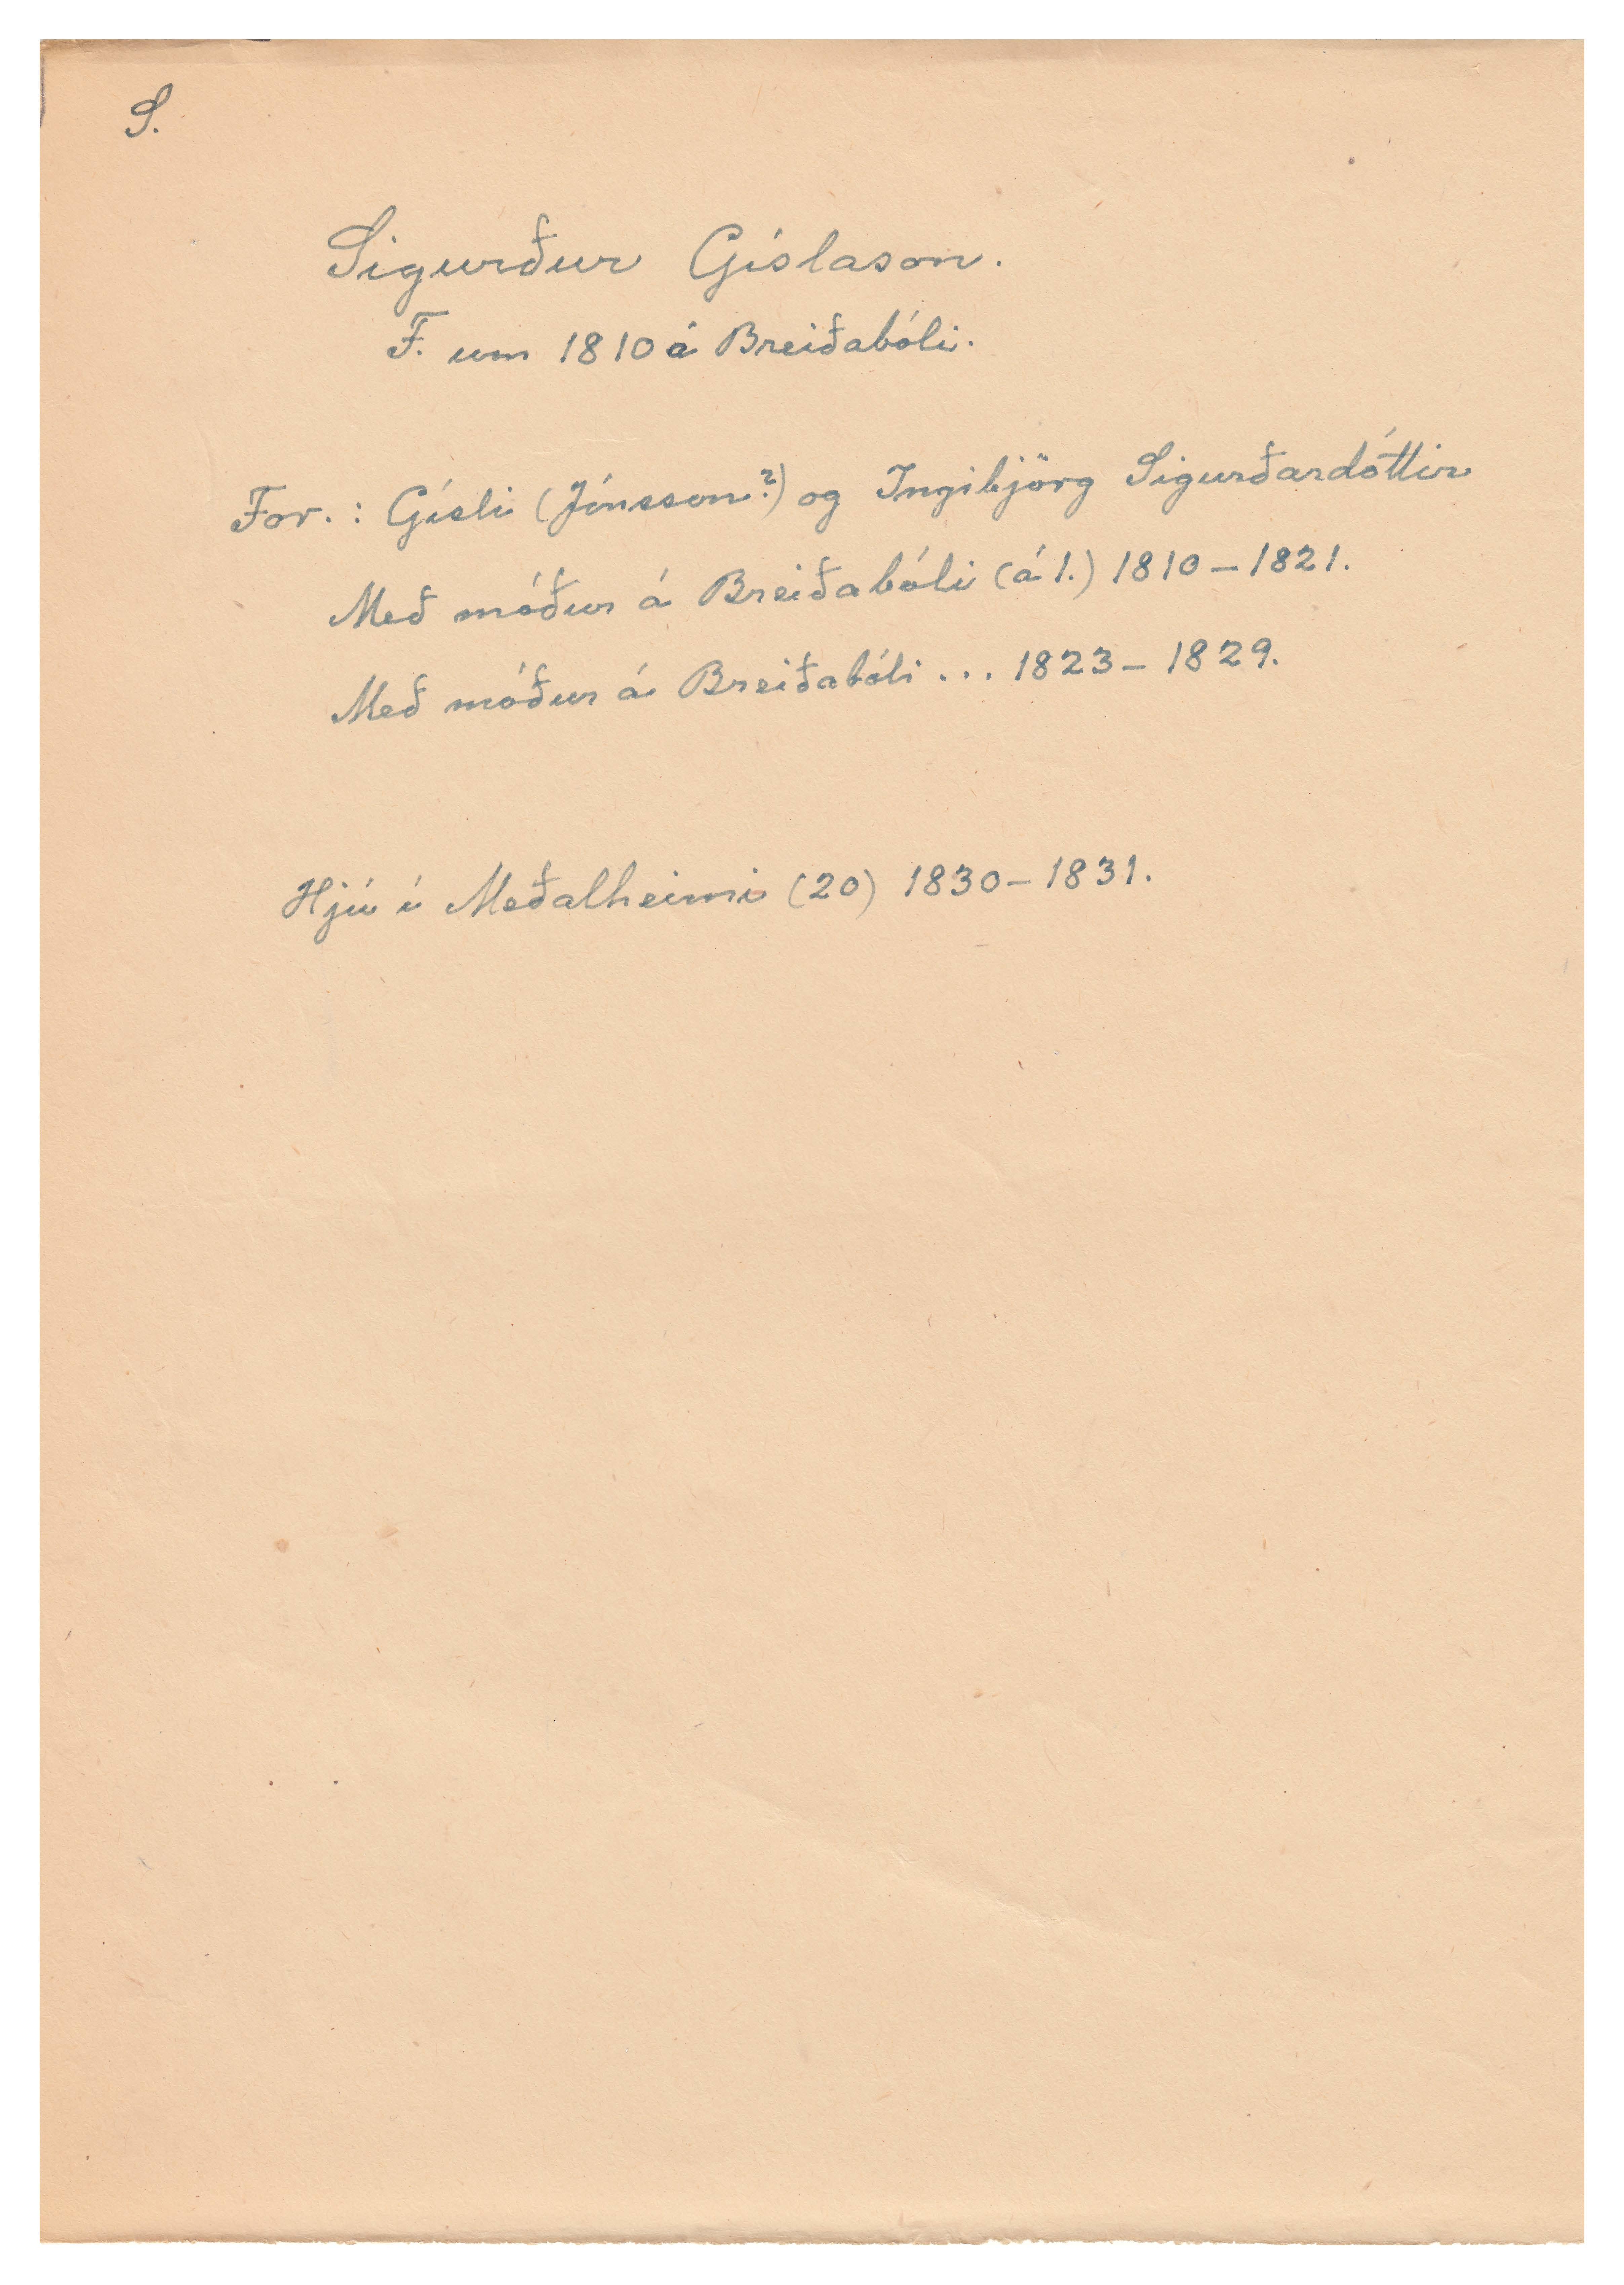 S.
Sigurður Gíslason.
F. um 1810 á Breiðabóli.
For.: Gísli (Jónsson?) og Ingibjörg Sigurðardóttir
Með móður á Breiðabóli (á 1.) 1810-1821.
Með móður á Breiðabóli ... 1823-1829.
Hjú í Meðalheimi (20) 1830-1831.